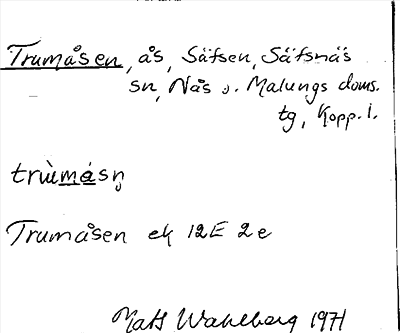 Trumåsen, ås, Säfsen, Säfsnäs
sn, Nås o. Malungs doms.
tg, Kopp. l.
trùmåsn̥
Trumåsen ek 12E 2e
Mats Wahlberg 1971